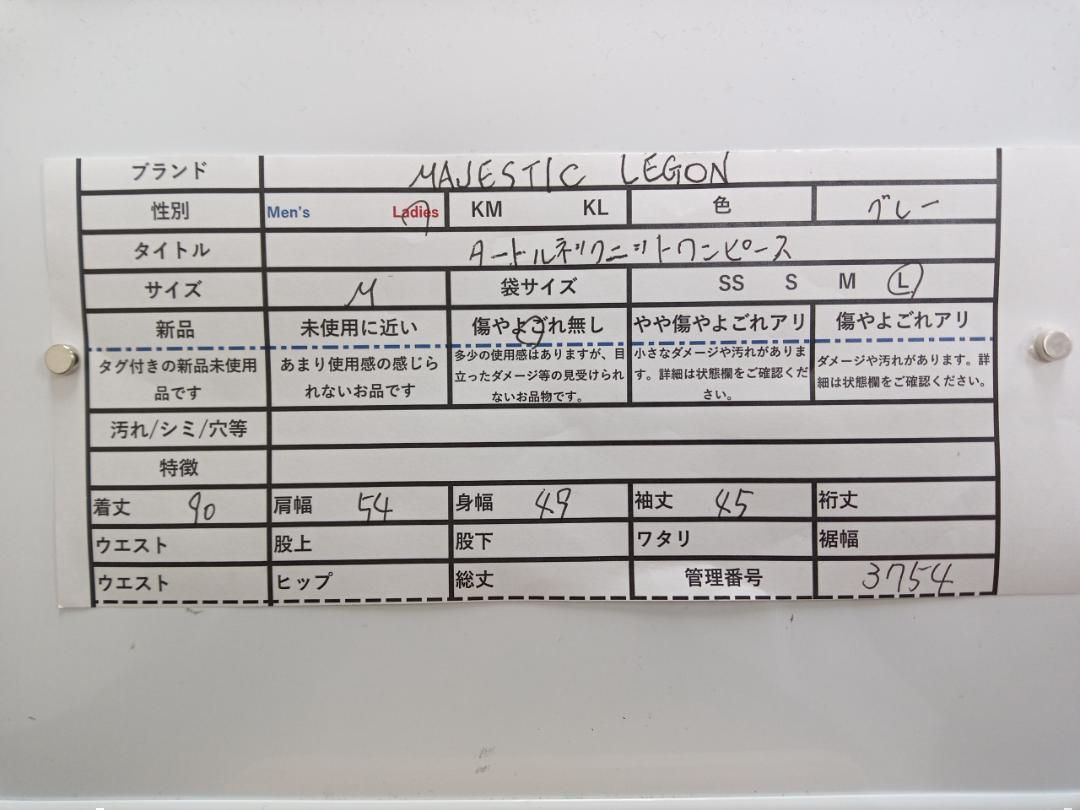 ブランド MAJESTIC LEGON
性別 Men's Ladies KM KL 色 グレー
タイトル タートルネックニットワンピース
サイズ M 袋サイズ SS S M L
新品 未使用に近い 傷やよごれ無し やや傷やよごれアリ 傷やよごれアリ
タグ付きの新品未使用 あまり使用感の感じら 多少の使用感はありますが、目 小さなダメージや汚れがありま ダメージや汚れがあります。詳
品です れないお品です 立ったダメージ等の見受けられ す。詳細は状態欄をご確認くだ 細は状態欄をご確認ください。
ないお品物です。 さい。
汚れ/シミ/穴等
特徴
着丈 90 肩幅 54 身幅 49 袖丈 45 裄丈
ウエスト 股上 股下 ワタリ 裾幅
ウエスト ヒップ 総丈 管理番号 3754